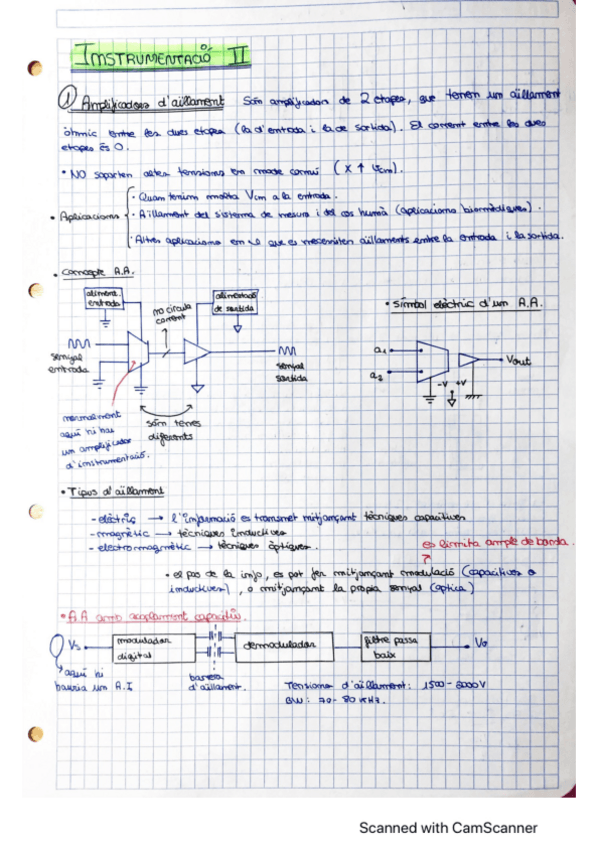 INSTRUMENTACIÓ II
1 Amplificadors d'aïllament Són amplificadors de 2 etapes, que tenen un aïllament
òhmic entre les dues etapes (la d'entrada i la de sortida). El corrent entre les dues
etapes és 0.
• NO soporten altes tensions en mode comú (x ↑ Vcm).
• Aplicacions
· Quan tenim molta Vcm a la entrada.
· Aïllament del sistema de mesura i del cos humà (aplicacions biomèdiques).
· Altres aplicacions en que es necessiten aïllaments entre la entrada i la sortida.
• Concepte A.A.
aliment. entrada
no circula corrent
alimentació de sortida
senyal entrada
senyal sortida
normalment aquí hi ha un amplificador d'instrumentació.
són terres diferents
• Símbol elèctric d'un A.A.
a1
a2
Vout
-V +V
• Tipus d'aïllament
- elèctric → l'informació es transmet mitjançant tècniques capacitives
- magnètic → tècniques inductives
- electromagnètic → tècniques òptiques.
es limita ample de banda.
• el pas de la info, es pot fer mitjançant modulació (capacitives o
inductives), o mitjançant la propia senyal (òptica)
• A.A amb acoplament capacitiu.
Vs
modulador digital
demodulador
filtre passa baix
Vo
aquí hi hauria un A.I
barrera d'aïllament.
Tensions d'aïllament: 1500 - 6000 V
BW: 70 - 80 kHz.
Scanned with CamScanner